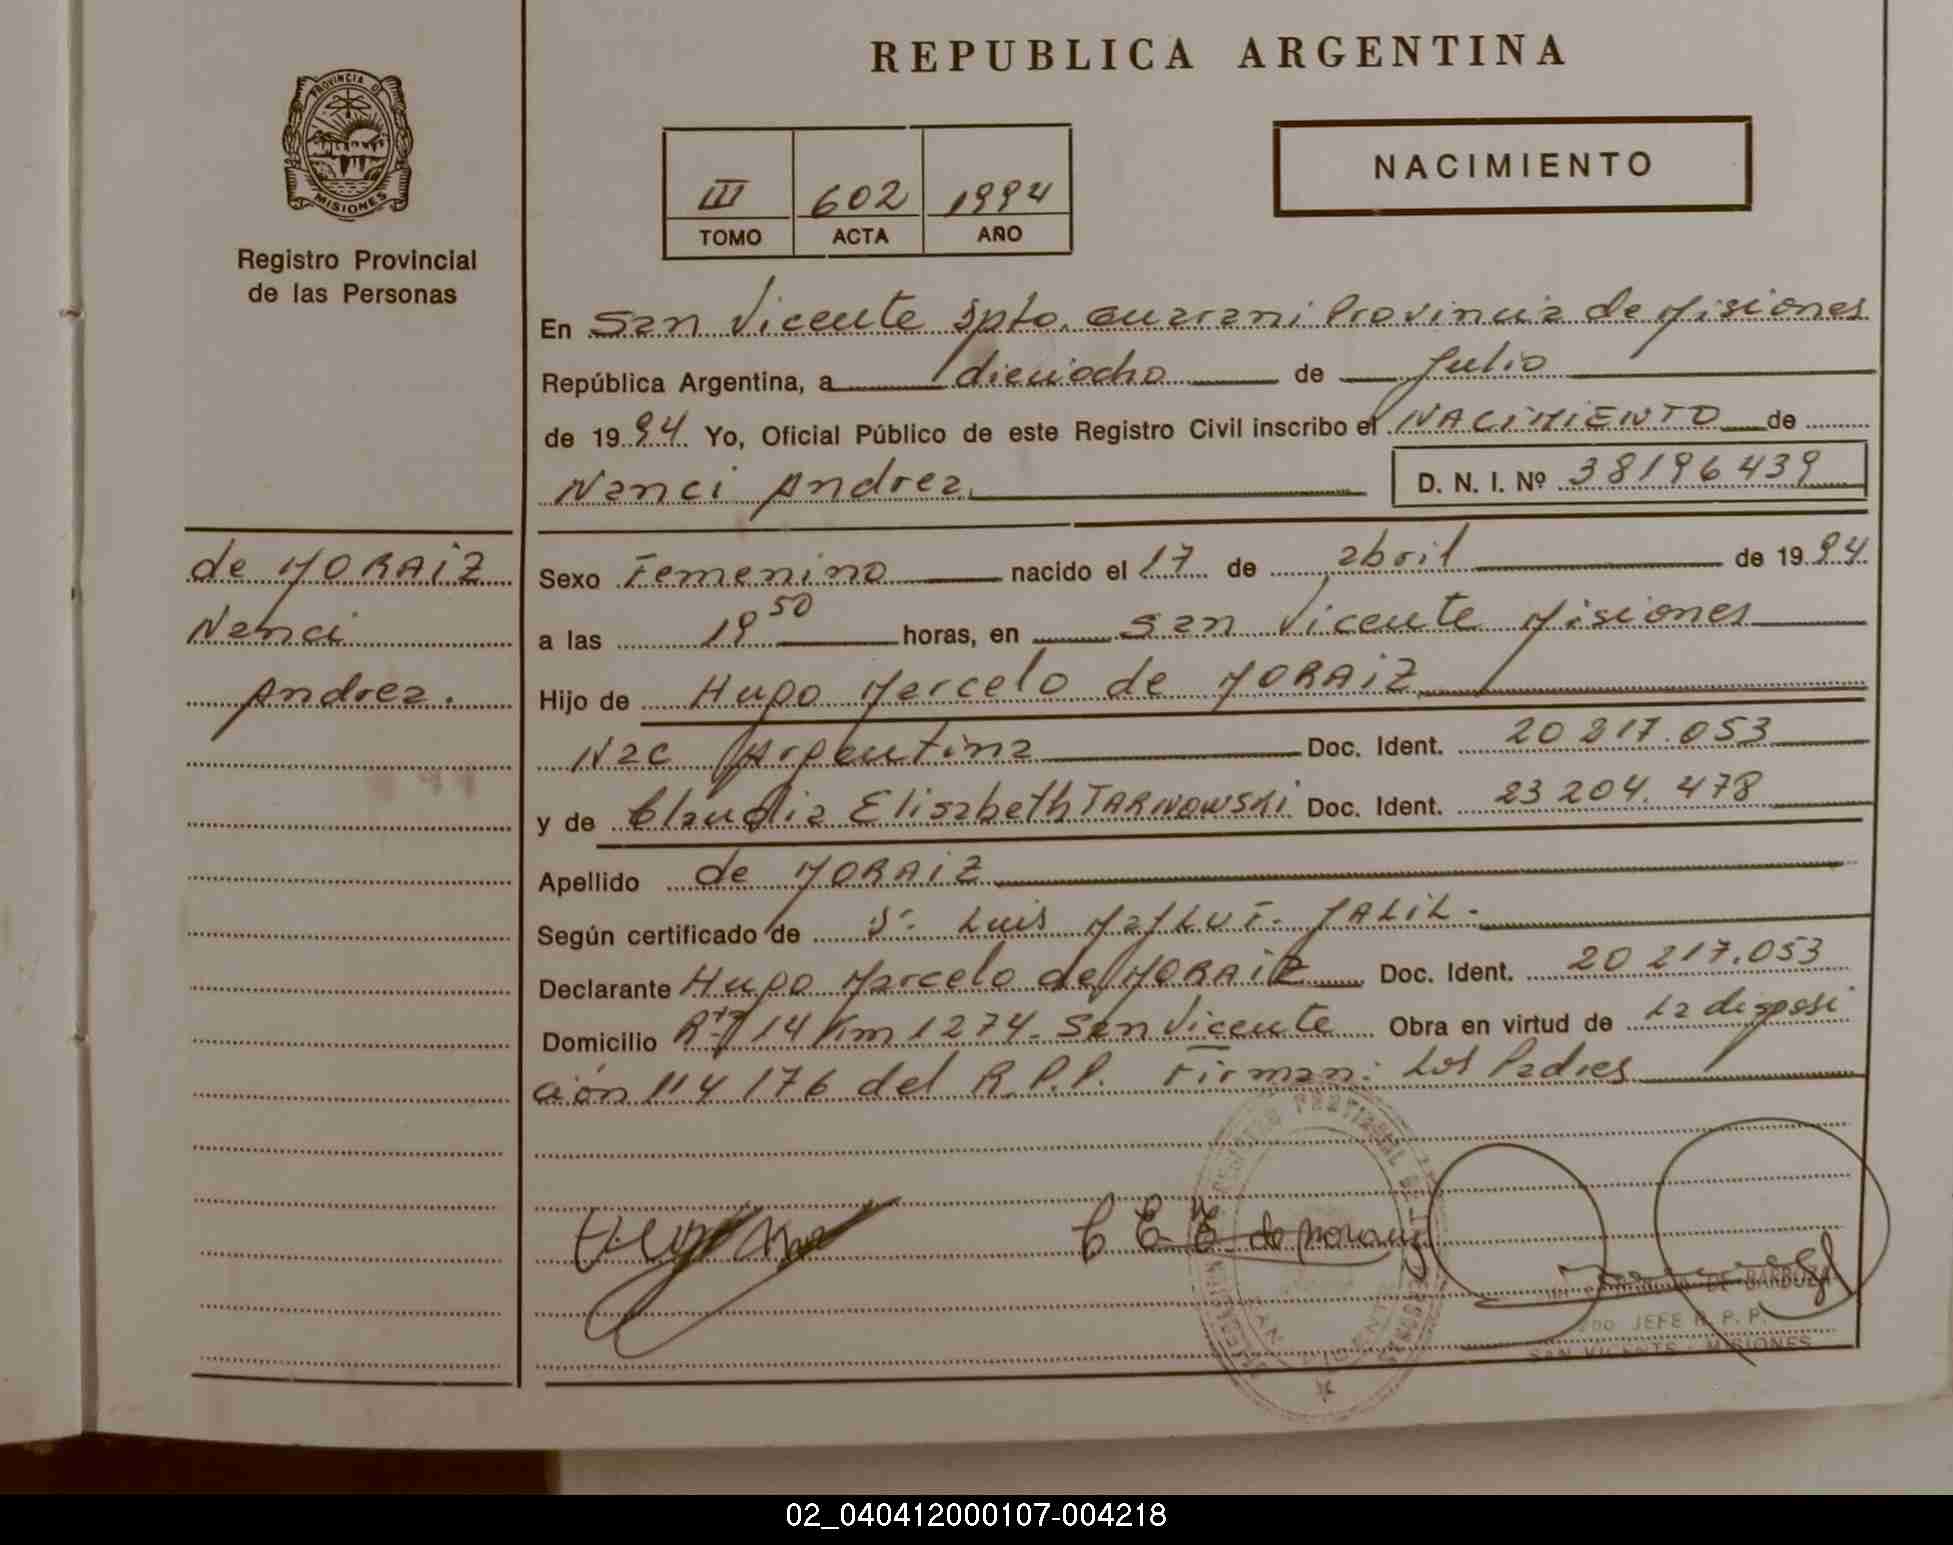 REPUBLICA ARGENTINA
PROVINCIA D
MISIONES
Registro Provincial
de las Personas
III 602 1994
TOMO ACTA AÑO
NACIMIENTO
En San Vicente Dpto. Guarani Provincia de Misiones
República Argentina, a dieciocho de Julio
de 1994 Yo, Oficial Público de este Registro Civil inscribo el NACIMIENTO de
Nanci Andrea
D. N. I. Nº 38196439
de MORAIZ
Nanci
Andrea.
Sexo Femenino nacido el 17 de abril de 1994
a las 19 50 horas, en San Vicente Misiones
Hijo de Hugo Marcelo de MORAIZ
Nac Argentina Doc. Ident. 20 217.053
y de Claudia Elisabeth TARNOWSKI Doc. Ident. 23 204. 478
Apellido de MORAIZ
Según certificado de Dr. Luis F. JALIL.
Declarante Hugo Marcelo de MORAIZ Doc. Ident. 20 217.053
Domicilio Rta 14 Km 1274. San Vicente Obra en virtud de la disposi
ción 114 176 del R.P.P. Firman: Los Padres
C E T. de Moraiz
DE BARBOZA
JEFE R. P. P.
SAN VICENTE - MISIONES
02_040412000107-004218